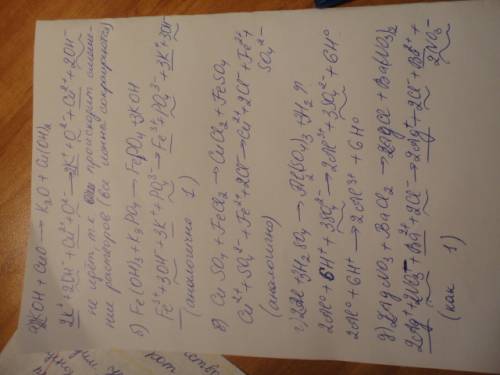 а) KOH + CuO → K₂O + Cu(OH)₂
2K⁺ + 2OH⁻ + Cu²⁺ + O²⁻ → 2K⁺ + O²⁻ + Cu²⁺ + 2OH⁻
не идёт, т.к. происходит
ние растворов (все ионы сокращаются)
б) Fe(OH)₃ + K₃PO₄ → FePO₄ + 3KOH
Fe³⁺ + 3OH⁻ + 3K⁺ + PO₄³⁻ → Fe³⁺ + PO₄³⁻ + 3K⁺ + 3OH⁻
(аналогично 1)
в) CuSO₄ + FeCl₂ → CuCl₂ + FeSO₄
Cu²⁺ + SO₄²⁻ + Fe²⁺ + 2Cl⁻ → Cu²⁺ + 2Cl⁻ + Fe²⁺ +
SO₄²⁻
(аналогично)
г) 2Al + 3H₂SO₄ → Al₂(SO₄)₃ + H₂↑
2Al⁰ + 6H⁺ + 3SO₄²⁻ → 2Al³⁺ + 3SO₄²⁻ + 6H⁰
2Al⁰ + 6H⁺ → 2Al³⁺ + 6H⁰
д) 2AgNO₃ + BaCl₂ → 2AgCl + Ba(NO₃)₂
2Ag⁺ + 2NO₃⁻ + Ba²⁺ + 2Cl⁻ → 2Ag⁺ + 2Cl⁻ + Ba²⁺ +
2NO₃⁻
(как 1)